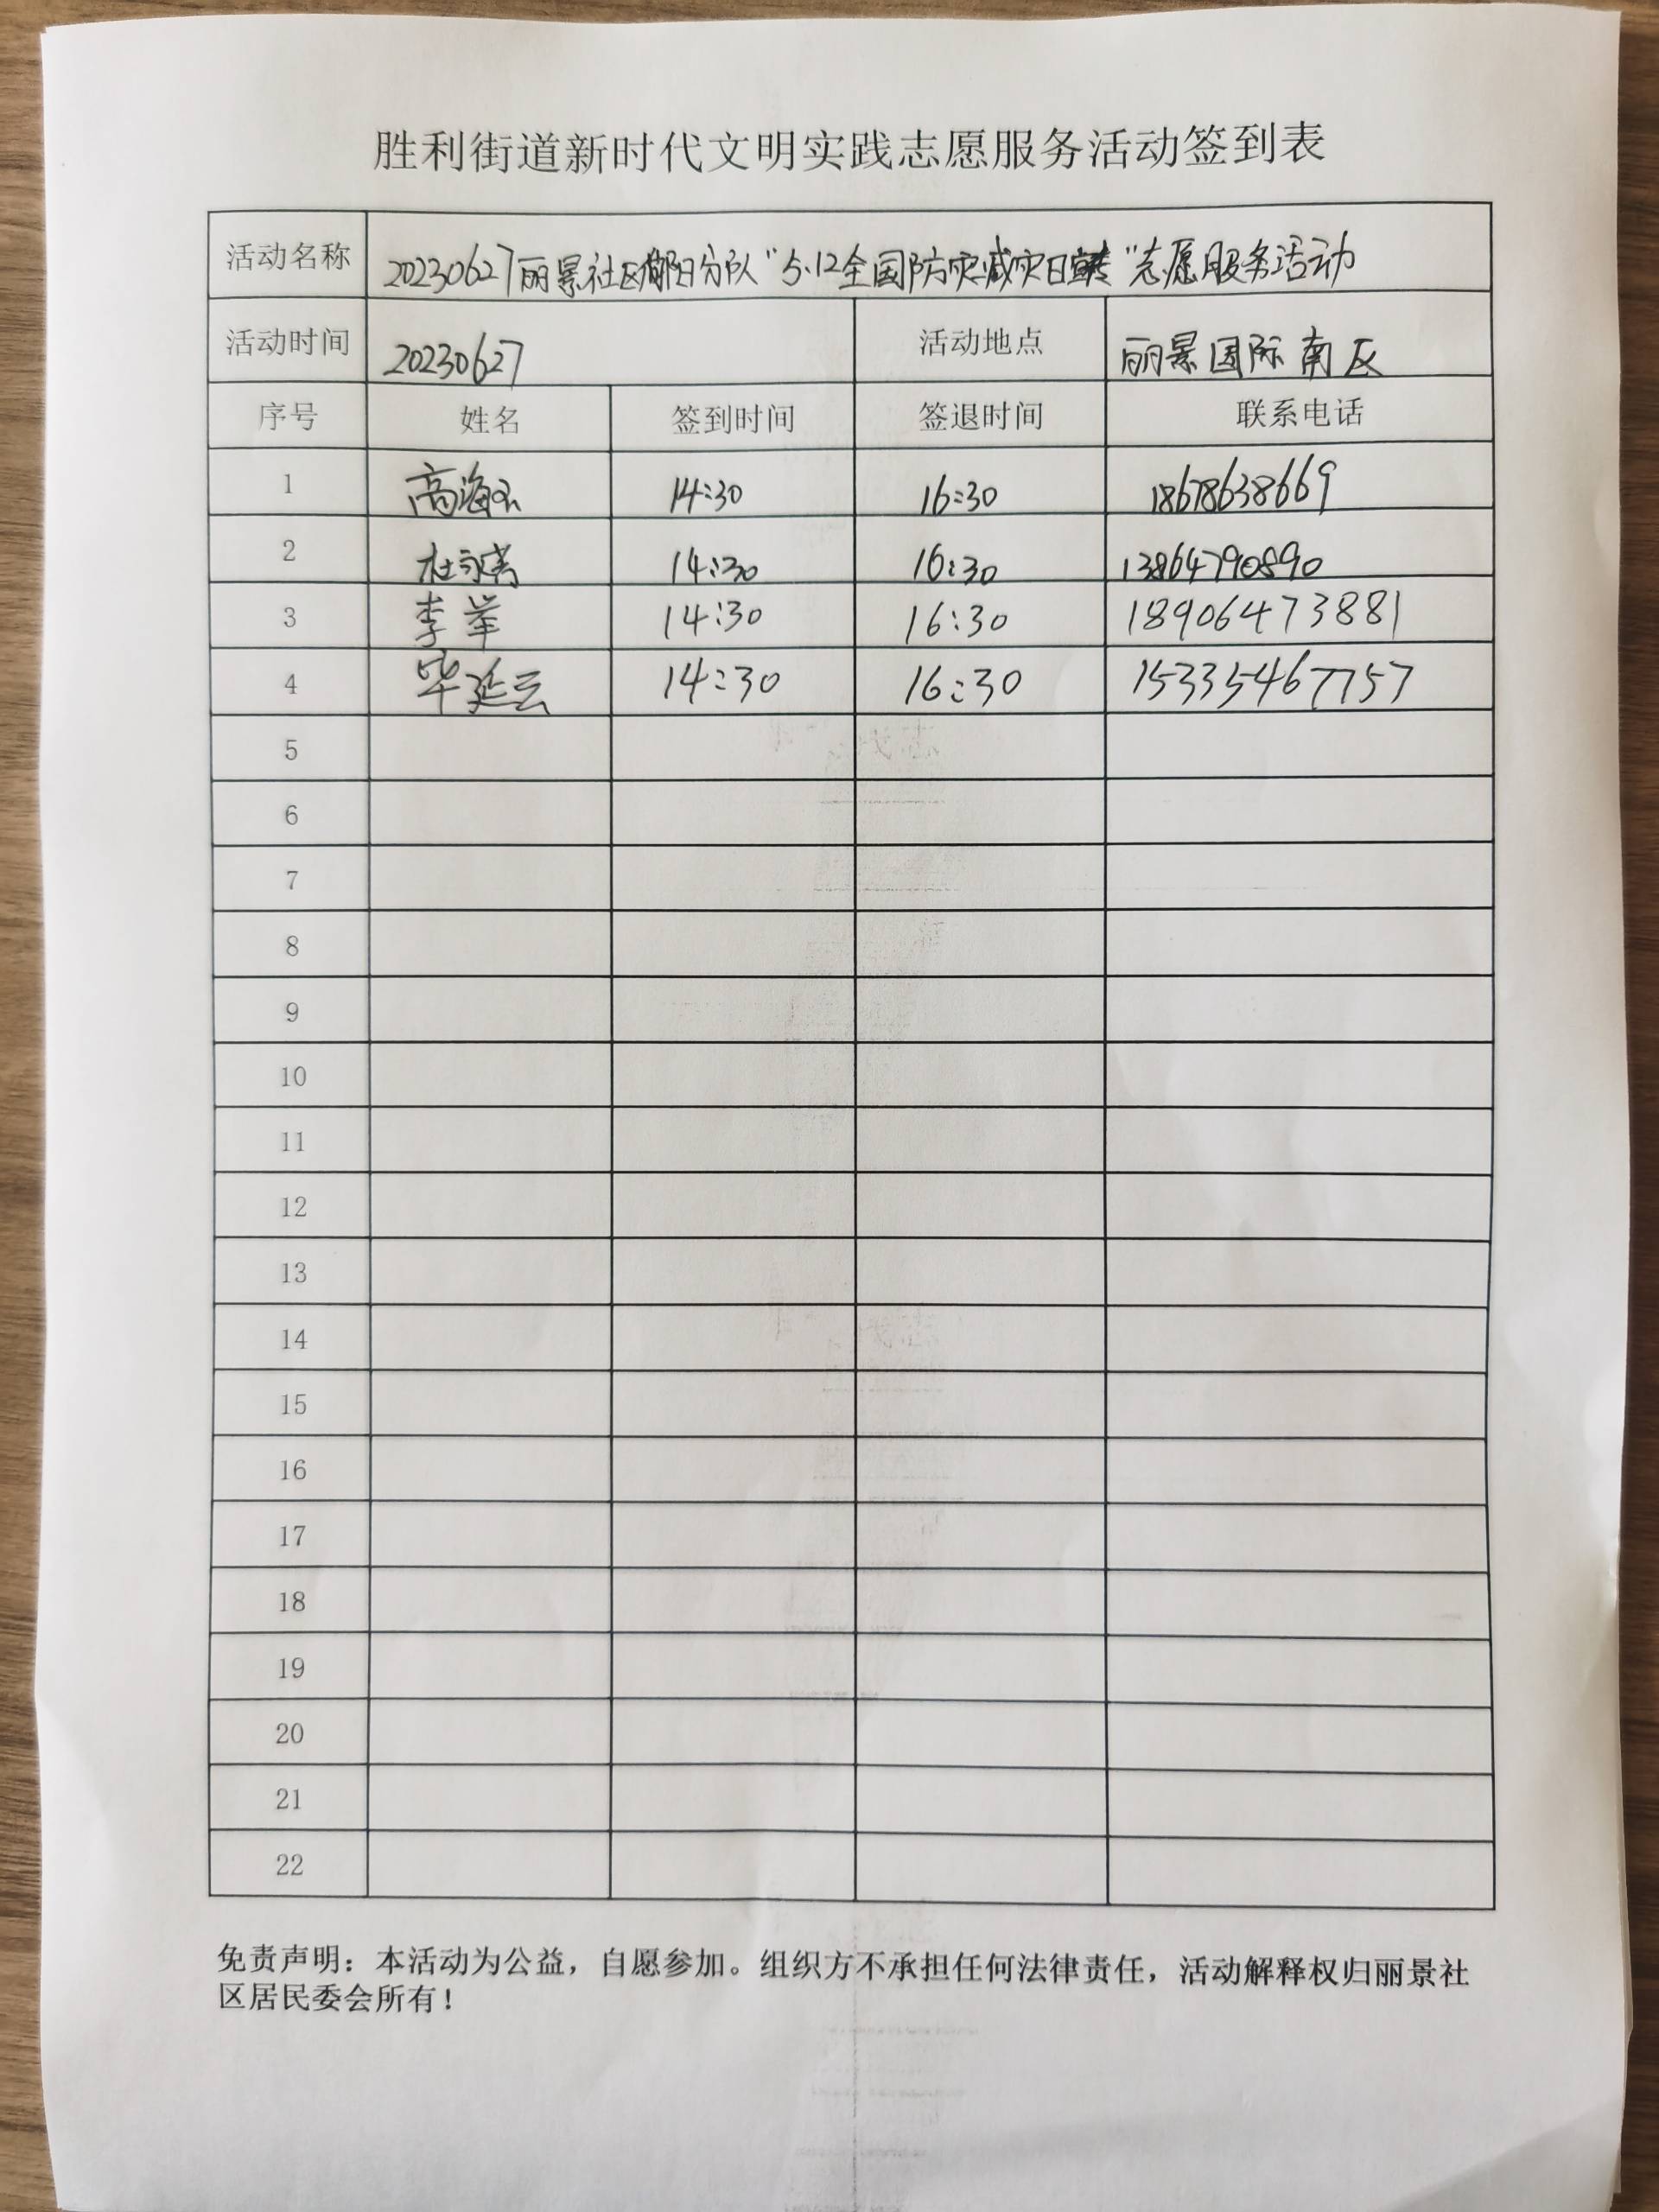 胜利街道新时代文明实践志愿服务活动签到表
活动名称 20230627丽景社区 阳分队“5.12全国防灾减灾日宣传”志愿服务活动
活动时间 20230627 活动地点 丽景国际南区
序号 姓名 签到时间 签退时间 联系电话
1 高海 14:30 16:30 18678638669
2 杜 14:30 16:30 13864790890
3 李举 14:30 16:30 18906473881
4 毕延云 14:30 16:30 15335467757
5
6
7
8
9
10
11
12
13
14
15
16
17
18
19
20
21
22
免责声明：本活动为公益，自愿参加。组织方不承担任何法律责任，活动解释权归丽景社
区居民委会所有！